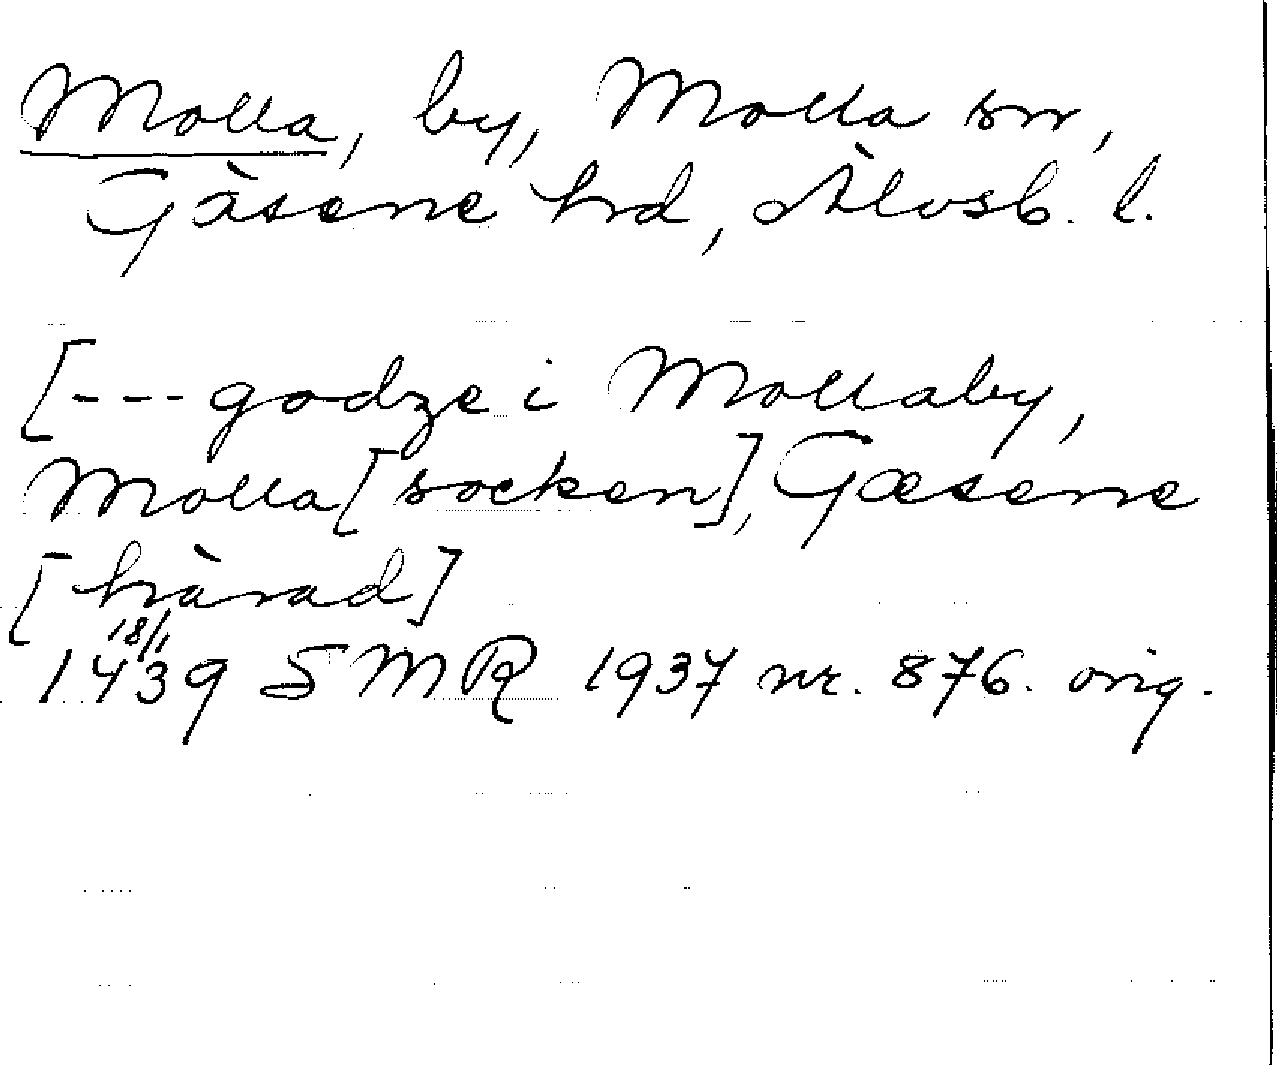 Molla, by, Molla sn,
Gäsene hrd, Älvsb. l.
[--- godze i Mollaby,
Molla [socken], Gæsene
[härad]
18/1
1439 SMR 1937 nr. 876. orig.